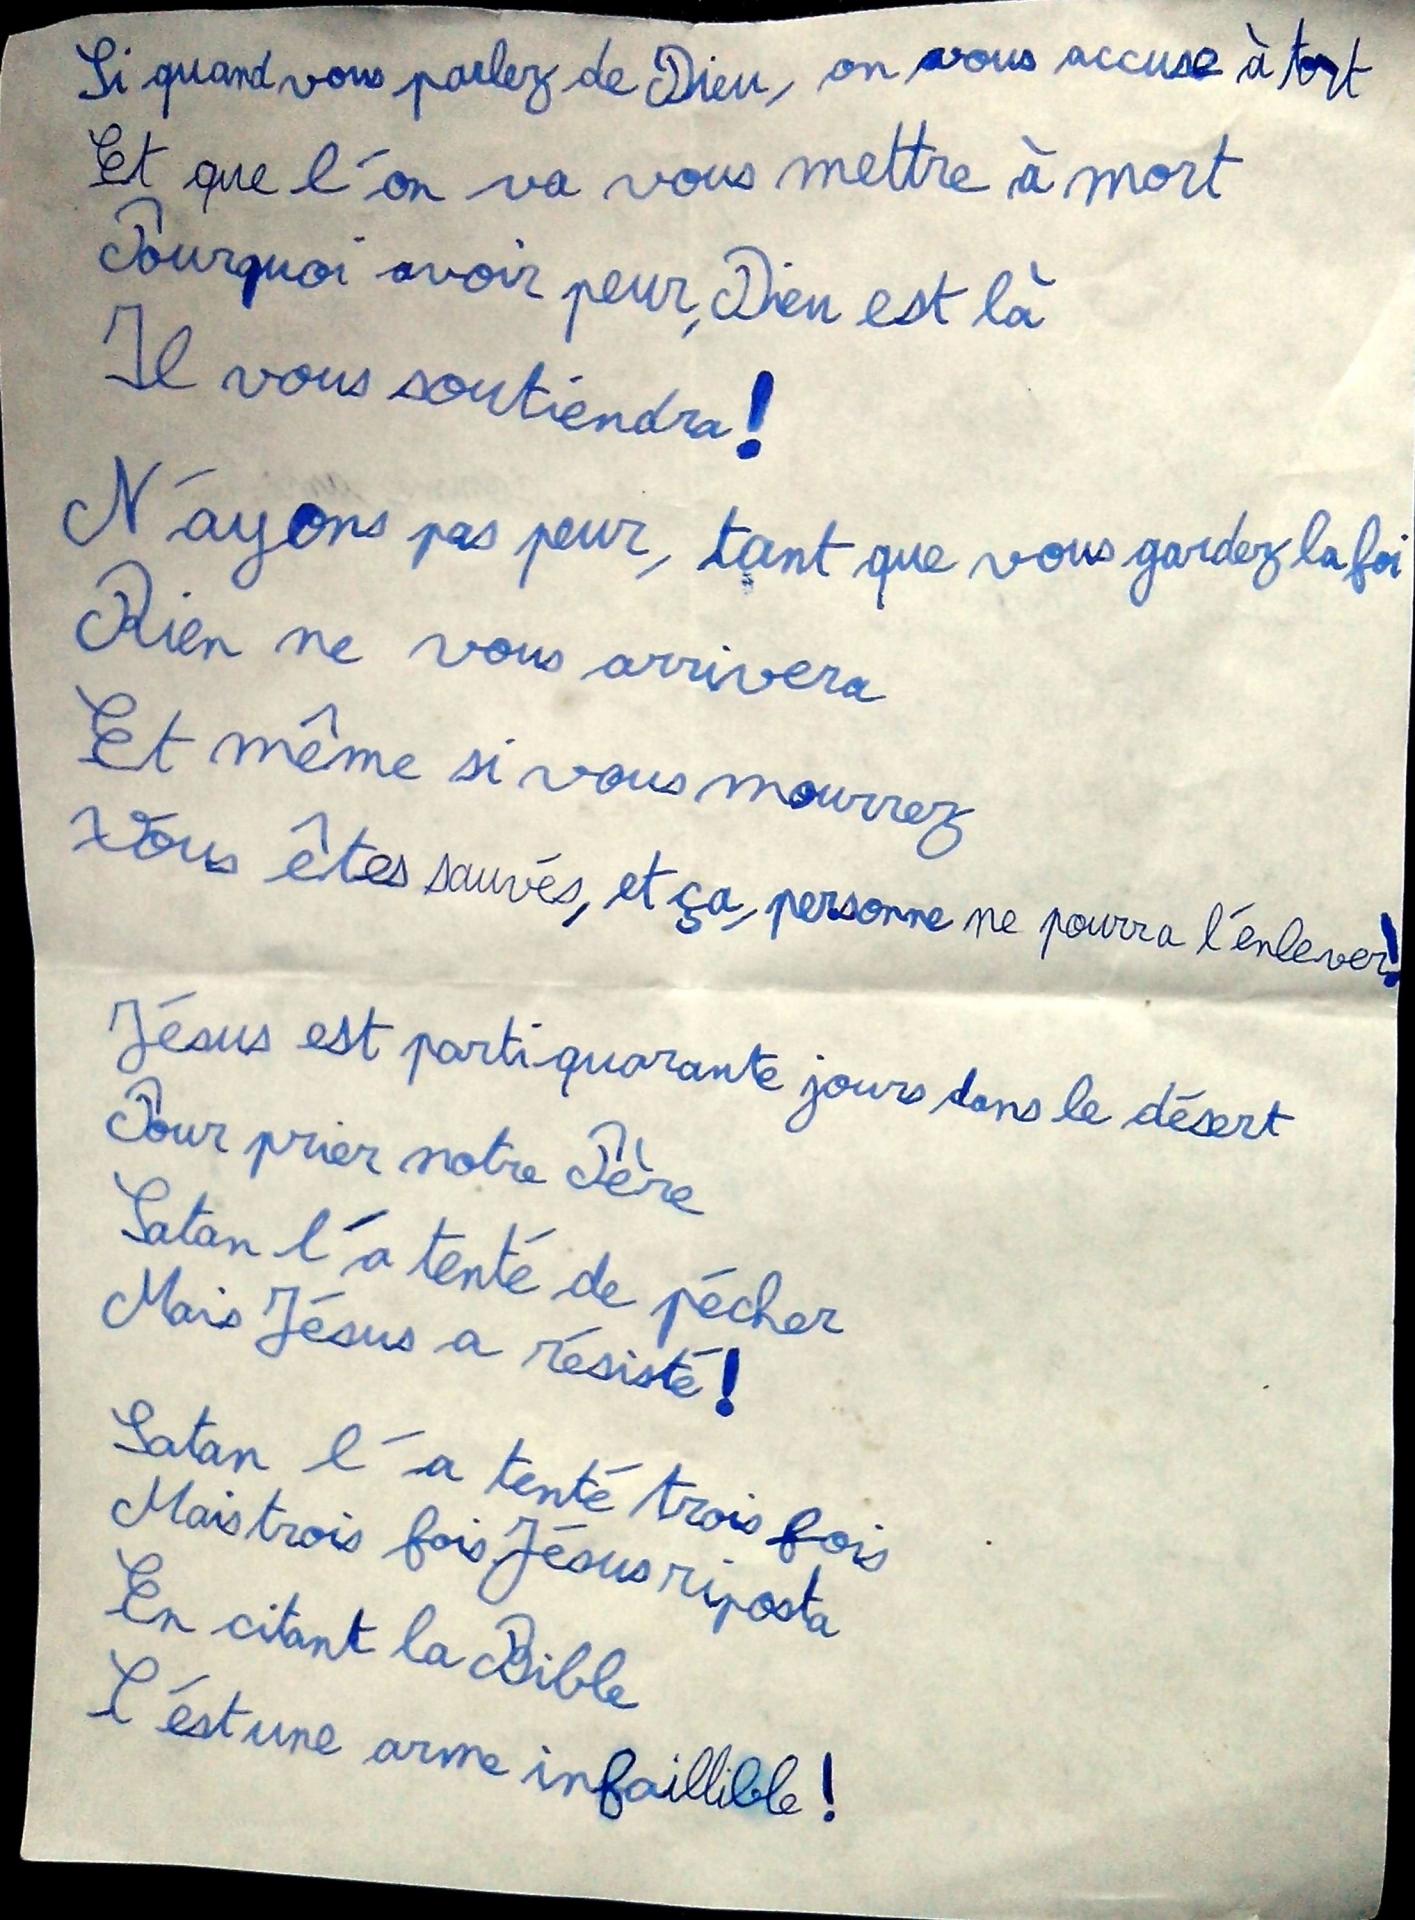 Si quand vous parlez de Dieu, on vous accuse à tort
Et que l'on va vous mettre à mort
Pourquoi avoir peur, Dieu est là
Il vous soutiendra !
N'ayons pas peur, tant que vous gardez la foi
Rien ne vous arrivera
Et même si vous mourrez
Vous êtes sauvés, et ça, personne ne pourra l'enlever !
Jésus est parti quarante jours dans le désert
Pour prier notre Père
Satan l'a tenté de pécher
Mais Jésus a résisté !
Satan l'a tenté trois fois
Mais trois fois Jésus riposta
En citant la Bible
C'est une arme infaillible !